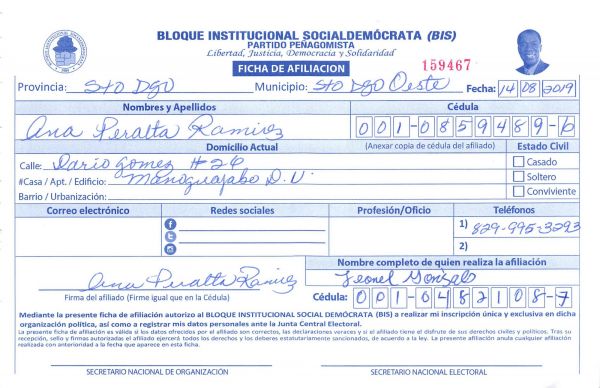 BLOQUE INSTITUCIONAL SOCIALDEMÓCRATA (BIS)
PARTIDO PEÑAGOMISTA
Libertad, Justicia, Democracia y Solidaridad
FICHA DE AFILIACION
159467
Provincia: Sto Dgo Municipio: Sto Dgo Oeste Fecha: 14 08 2019
Nombres y Apellidos Cédula
Ana Peralta Ramirez 001-0859489-6
Domicilio Actual (Anexar copia de cédula del afiliado) Estado Civil
Calle: Dario Gomez #26 Casado
#Casa / Apt. / Edificio: Manoguayabo D.N. Soltero
Barrio / Urbanización: Conviviente
Correo electrónico Redes sociales Profesión/Oficio Teléfonos
1) 829-995-3293
2)
Nombre completo de quien realiza la afiliación
Ana Peralta Ramirez Leonel Gonzalo
Firma del afiliado (Firme igual que en la Cédula) Cédula: 001-0482108-7
Mediante la presente ficha de afiliación autorizo al BLOQUE INSTITUCIONAL SOCIAL DEMÓCRATA (BIS) a realizar mi inscripción única y exclusiva en dicha
organización política, así como a registrar mis datos personales ante la Junta Central Electoral.
La presente ficha de afiliación es válida si los datos ofrecidos por el afiliado son correctos, las declaraciones veraces y si el afiliado tiene el disfrute de sus derechos civiles y políticos. Tras su
recepción, sello y firmas autorizadas el afiliado ejercerá todos los derechos y los deberes estatutariamente sancionados, de acuerdo a la ley. La presente afiliación anula cualquier afiliación
realizada con anterioridad a la fecha que aparece en esta ficha.
SECRETARIO NACIONAL DE ORGANIZACIÓN SECRETARIO NACIONAL ELECTORAL